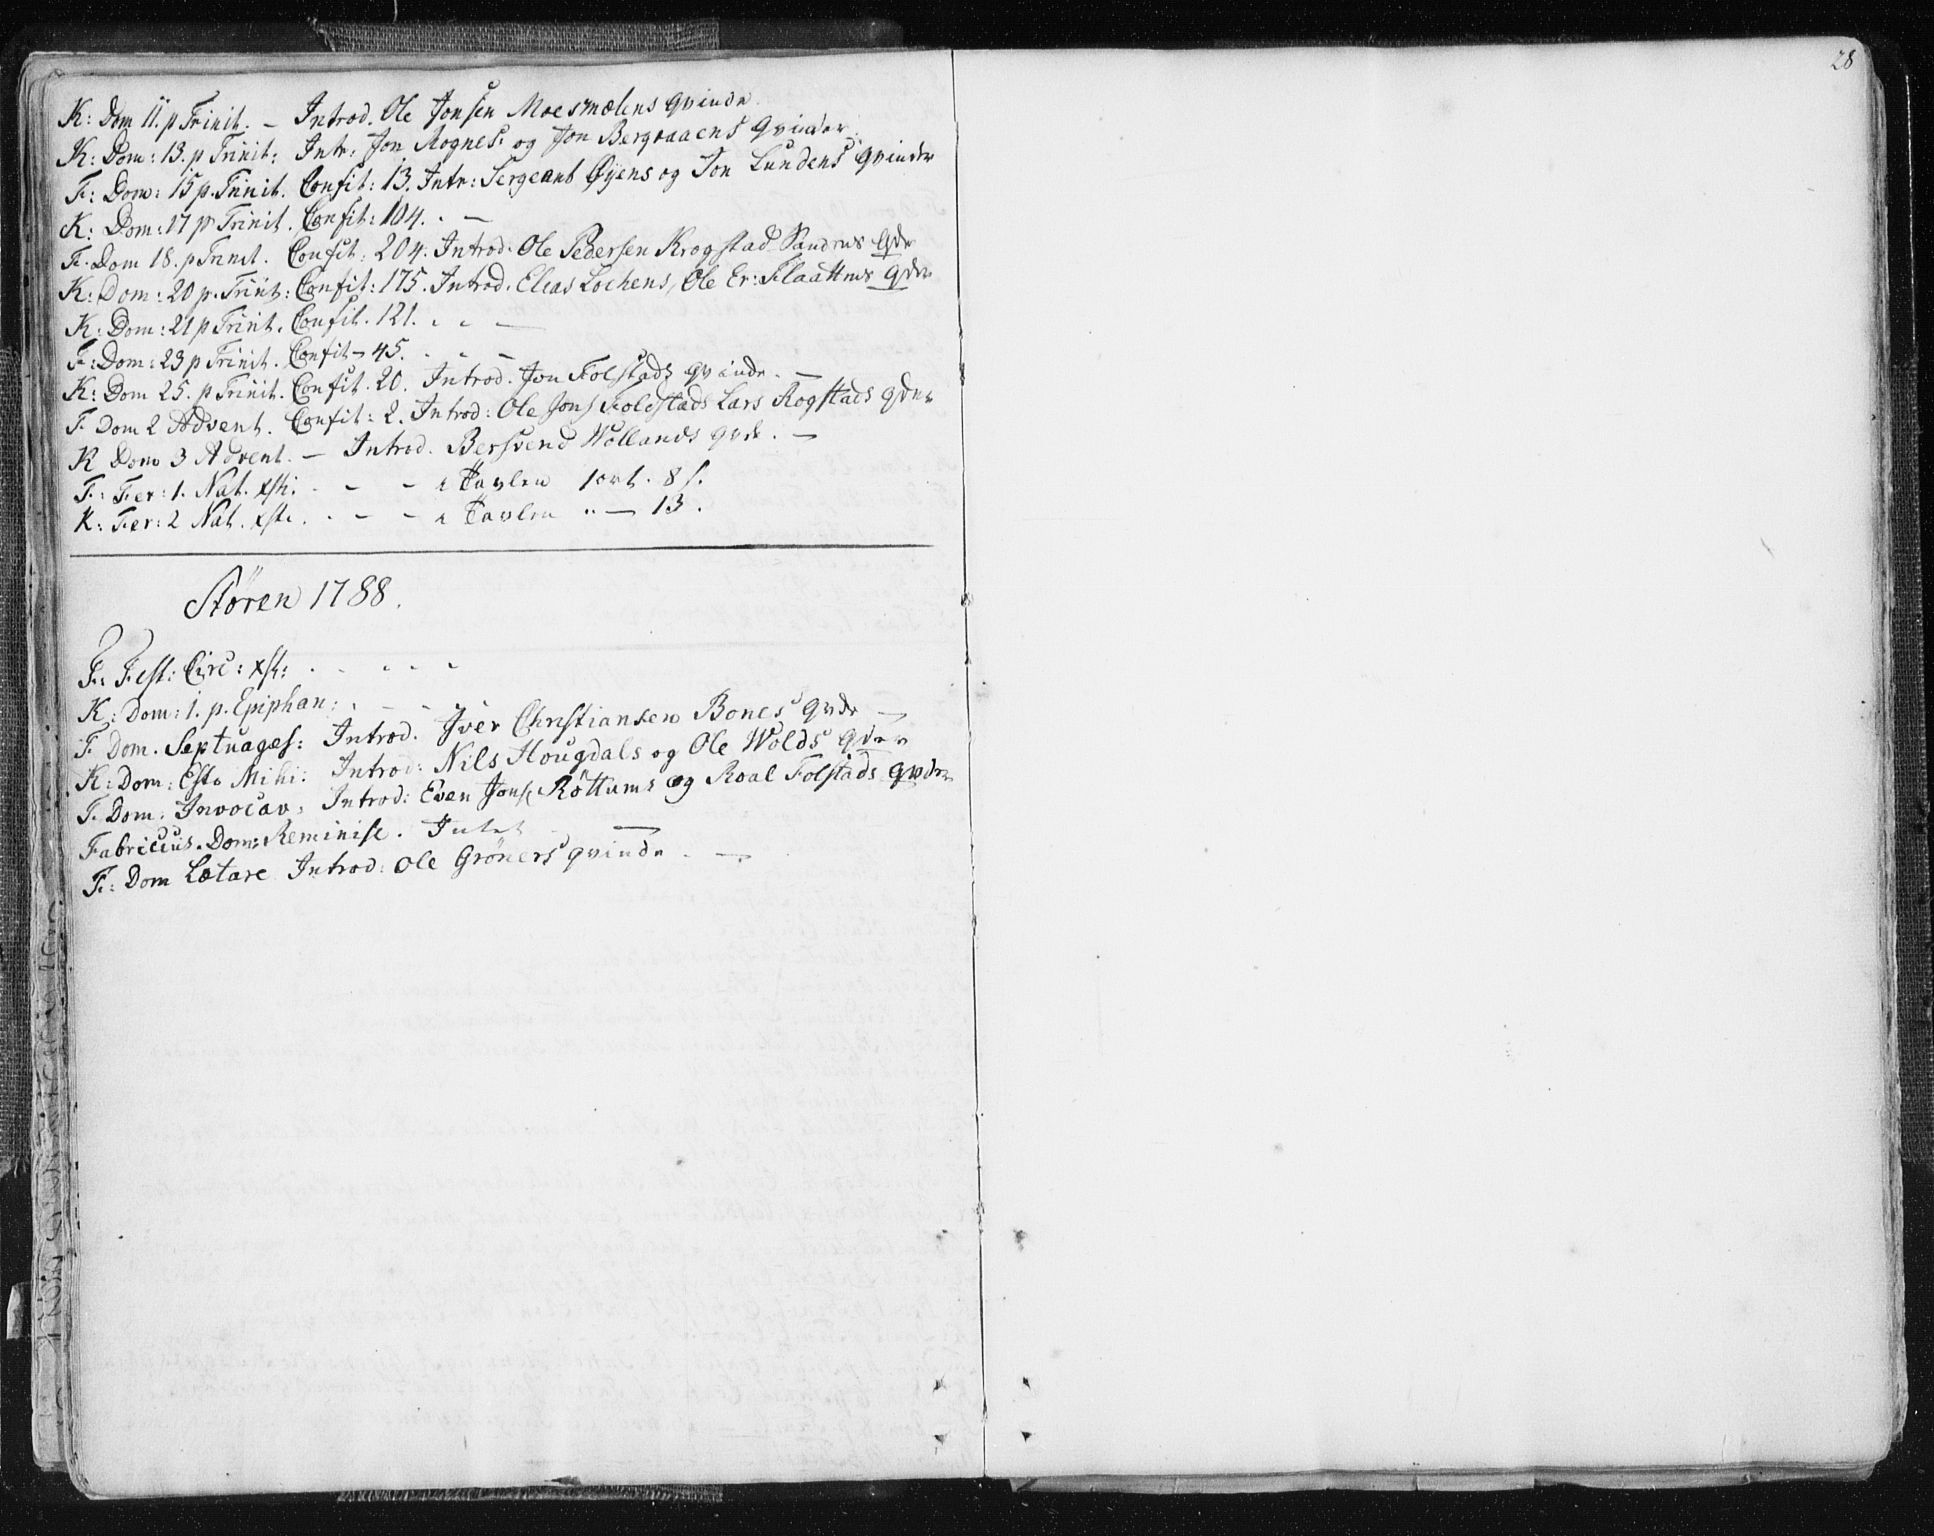 28
K: Dom 11. p Trinit. – Introd. Ole Jonsen Moesmælens qvinde.
K: Dom: 13. p Trinit: Intr: Jon Rognes: og Jon Bergraaens qvinder.
F: Dom: 15 p. Trinit. Confit: 13. Intr: Sergeant Øyens og Jon Lundens qvinder
K: Dom: 17 p Trinit. Confit: 104. . –
F. Dom 18. p Trinit. Confit: 204. Introd. Ole Pedersen Krogstad Sandnes qvdr
K: Dom: 20 p. Trinit: Confit: 175. Introd. Elias Lochens, Ole Er: Flaattens qvdr
K: Dom: 21 p Trinit. Confit. 121. . . –
F: Dom: 23 p Trinit. Confit – 45. . . –
K: Dom 25. p Trinit. Confit. 20. Introd. Jon Folstads qvinde. –
F. Dom 2 Advent. Confit: 2. Introd: Ole Jons Foldstads Lars Rogstads qvdr
K Dom 3 Advent. – Introd. Bersvend Wollands qvde. –
F: Fer: 1. Nat. xsti. . – – i Tavlen 1 ort. 8 s.
K: Fer: 2 Nat. xsti. . – – – i Tavlen " – 13.
Støren 1788.
F: Fest: Circ: xsti: . . . . .
K: Dom: 1. p. Epiphan: . – – –
F. Dom. Septuages: Introd. Iver Christiansen Bones qvde –
K: Dom: Esto Mihi: Introd: Nils Hougdals og Ole Wolds qvdr
F. Dom: Invocav: Introd: Even Jons Röttums og Roal Folstads qvdr
Fabricius. Dom: Reminisc. Intet –
F: Dom Lætare Introd: Ole Gröners qvinde . –